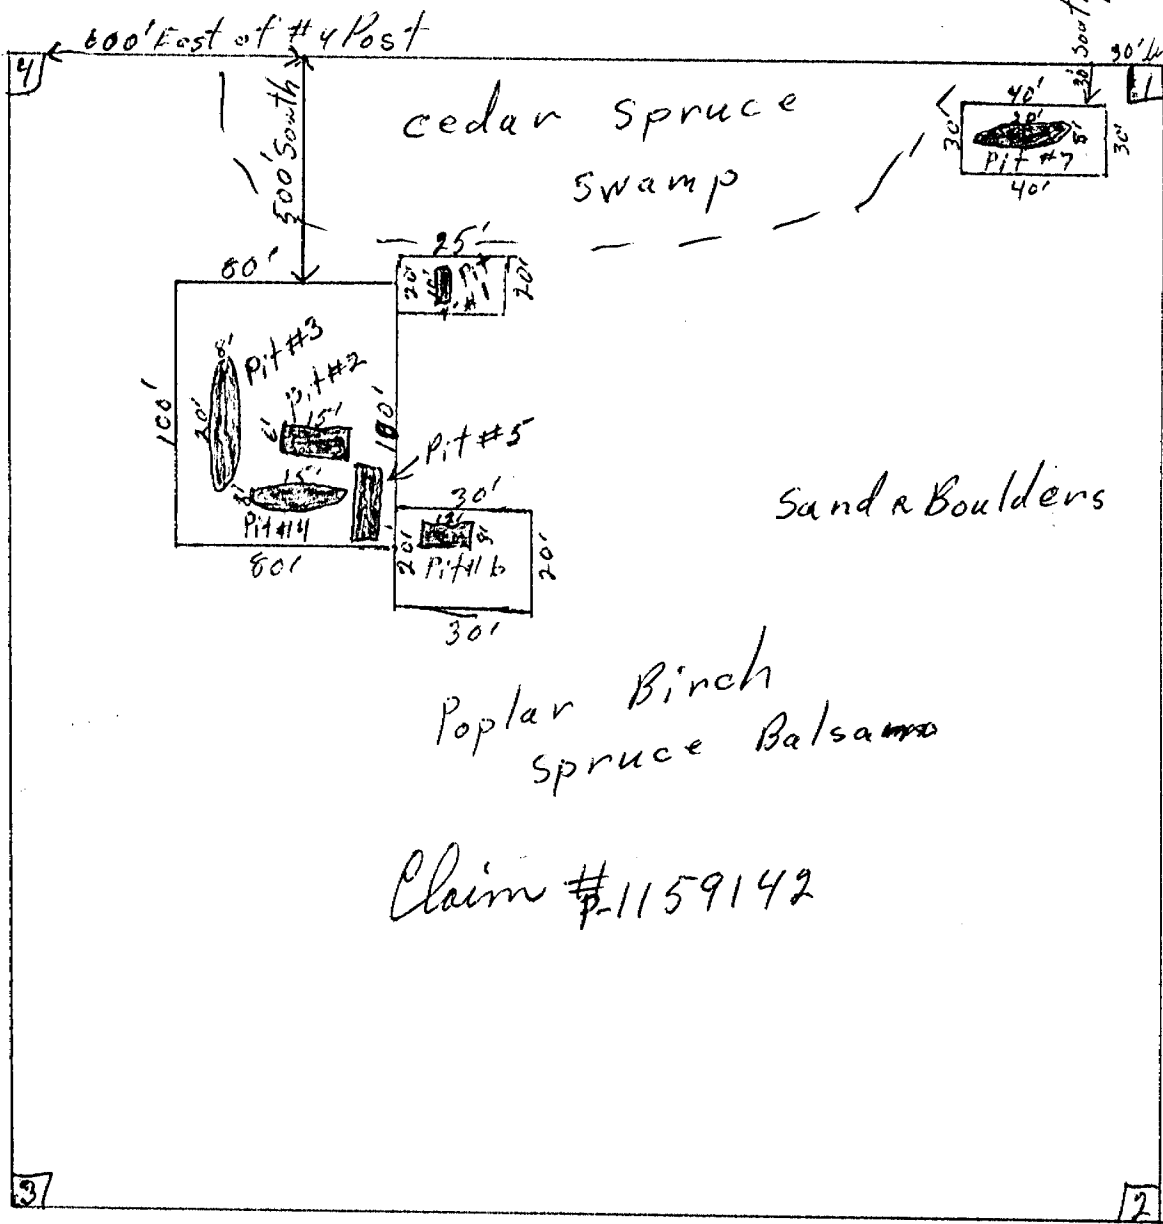 600' East of #4 Post
30'
30' South
4
1
500' South
cedar Spruce
Swamp
40'
30'
20'
8'
30'
Pit #7
40'
25'
80'
20'
10'
Pit #1
4'
20'
8'
Pit #3
Pit #2
100'
20'
6'
15'
100'
Pit #5
15'
8'
Pit #4
30'
12'
8'
20'
Pit #6
20'
80'
30'
Sand & Boulders
Poplar Birch
Spruce Balsam
Claim #P-1159142
3
2